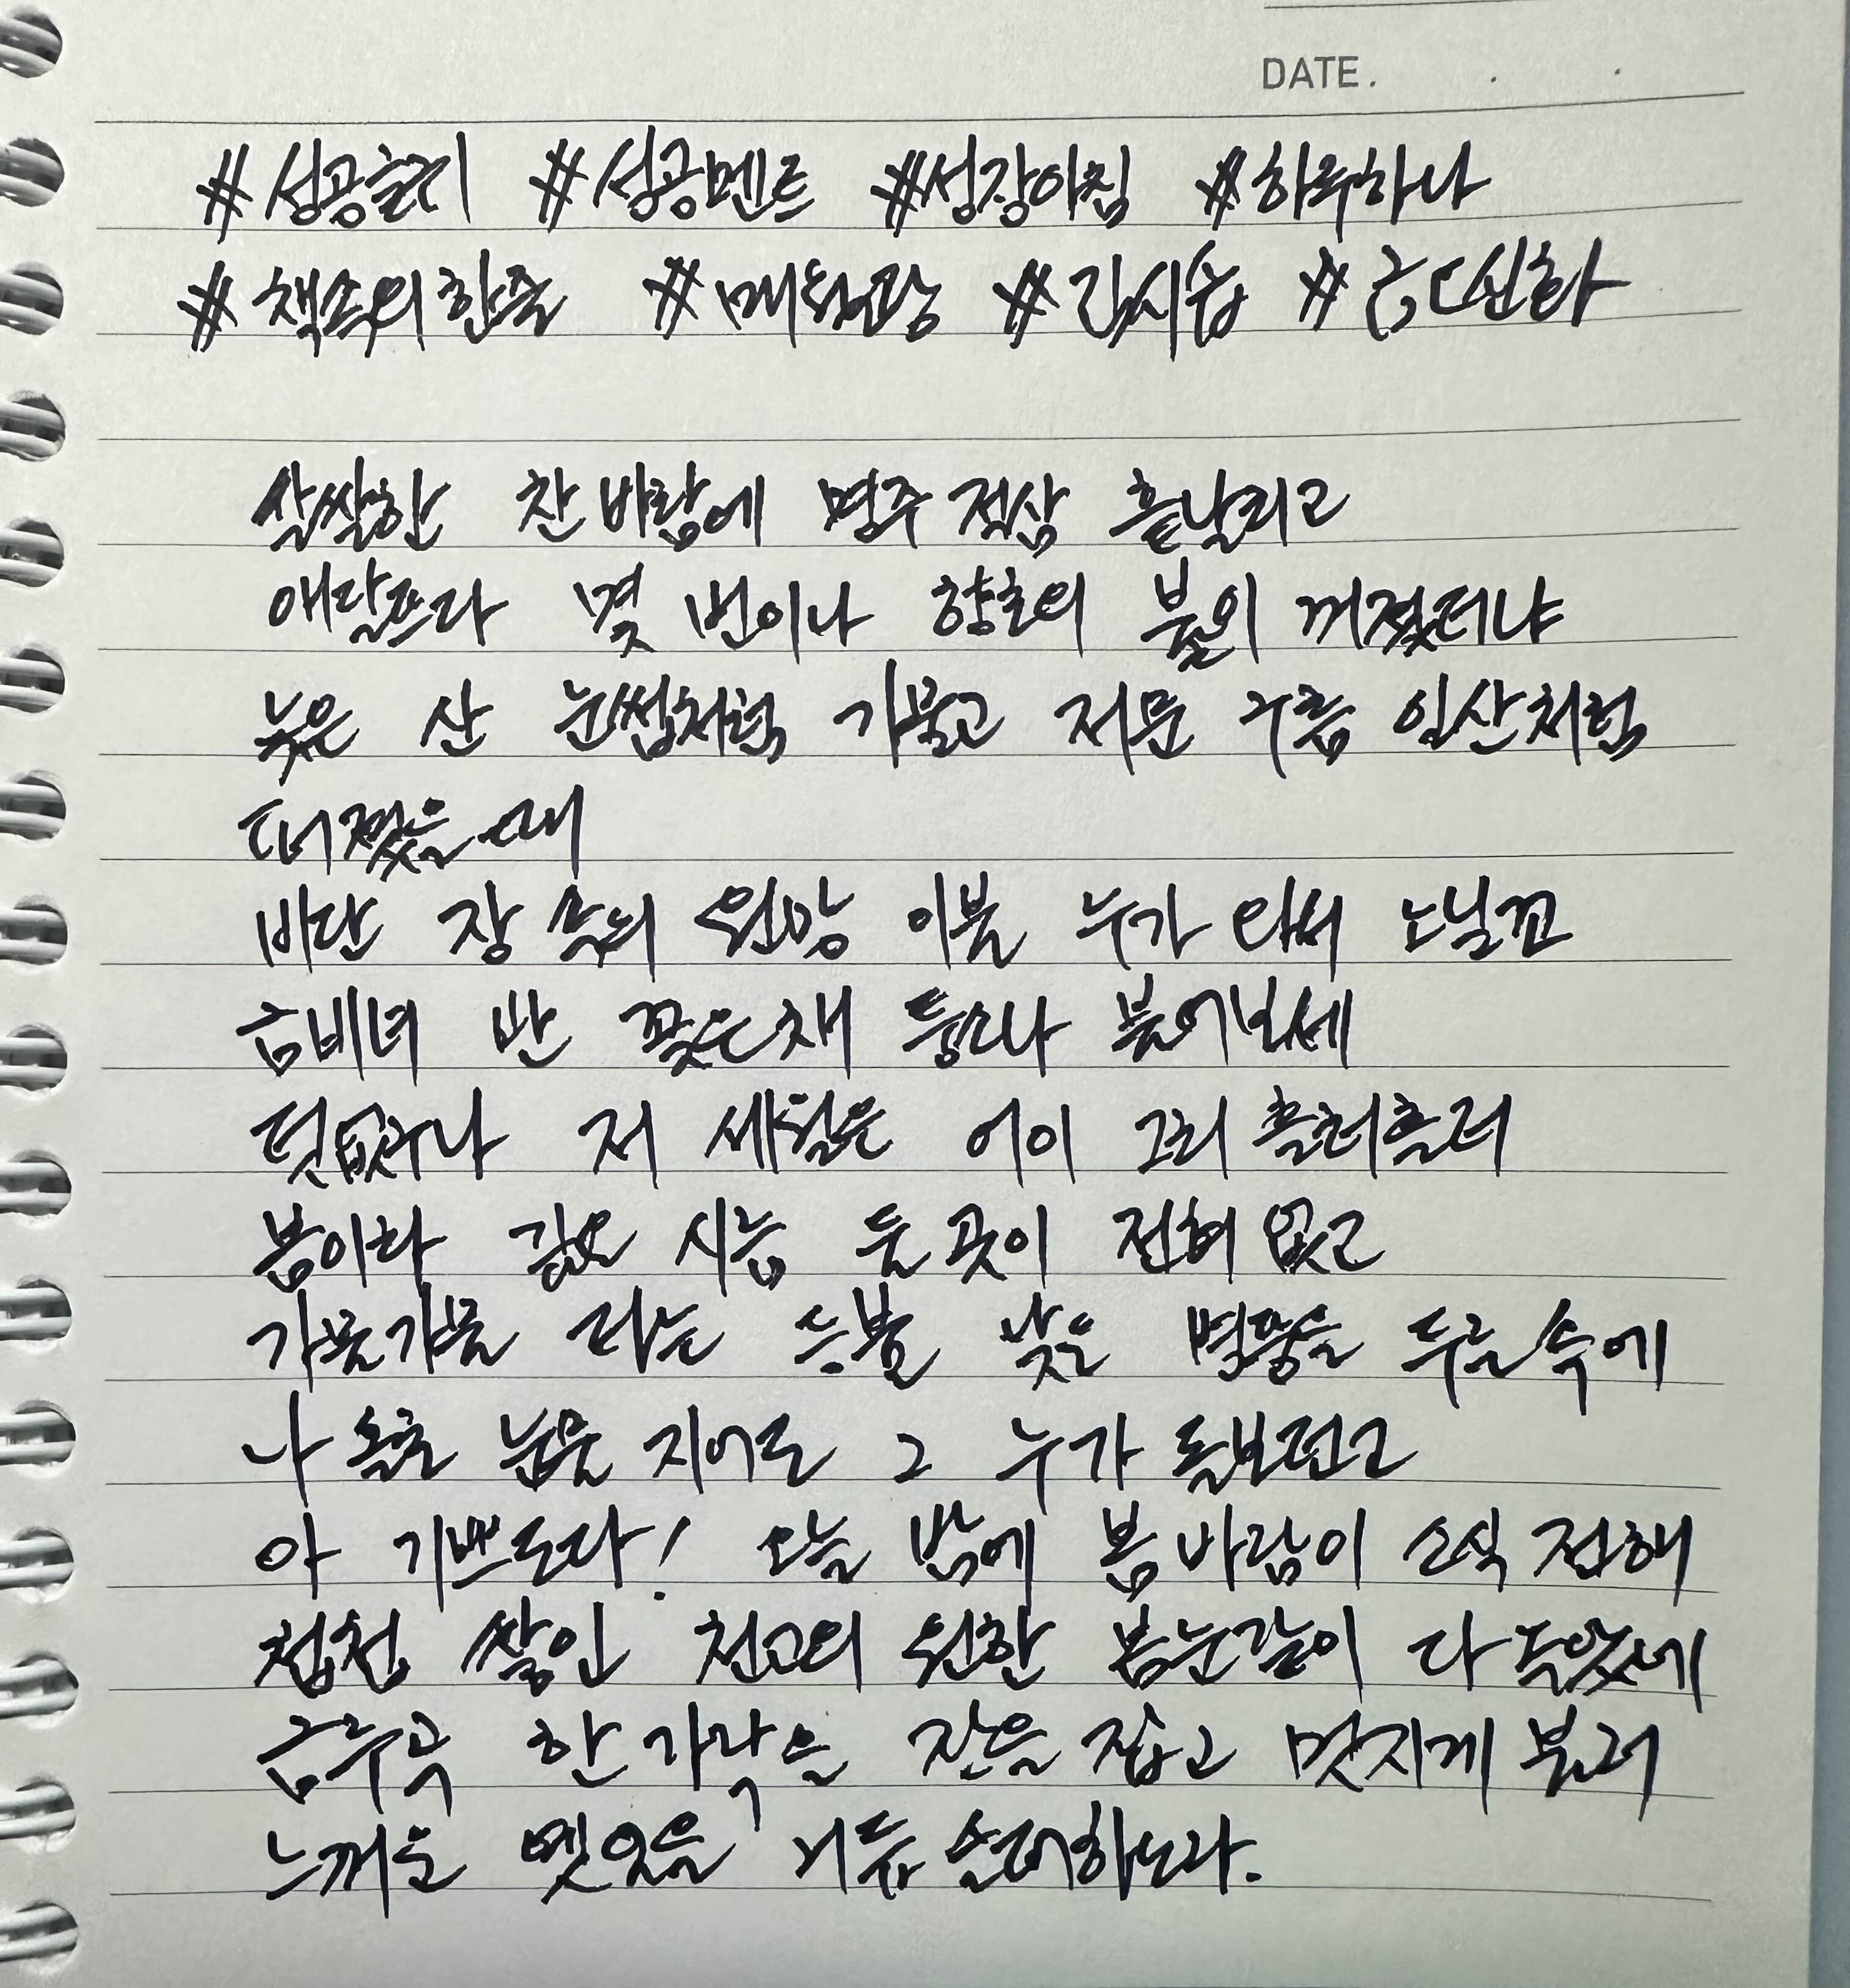 DATE.
#성공습관 #성공멘토 #성장아침 #하루하나
#책속의한줄 #매월당 #김시습 #금오신화
쌀쌀한 찬바람에 명주 적삼 흩날리고
애달프다 몇 번이나 향로의 불이 꺼졌더냐
늦은 산 눈썹처럼 가물고 저문 구름 일산처럼
퍼졌을때
비단 장 속의 원앙 이불 누가 와서 노닐꼬
금비녀 반 꽂은채 퉁소나 불어보세
덧없구나 저 세월은 어이 그리 흘러흘러
봄이라 깊은 시름 둘 곳이 전혀 없고
가물가물 타는 등불 낮은 병풍을 두른 속에
나 홀로 눈물 지어도 그 누가 돌보련고
아 기쁘도다! 오늘 밤에 봄바람이 소식 전해
첩첩 쌓인 천고의 원한 봄눈같이 다 녹았네
금루곡 한 가락을 잔을 잡고 멋지게 불러
느꺼운 옛일을 거듭 슬퍼하노라.